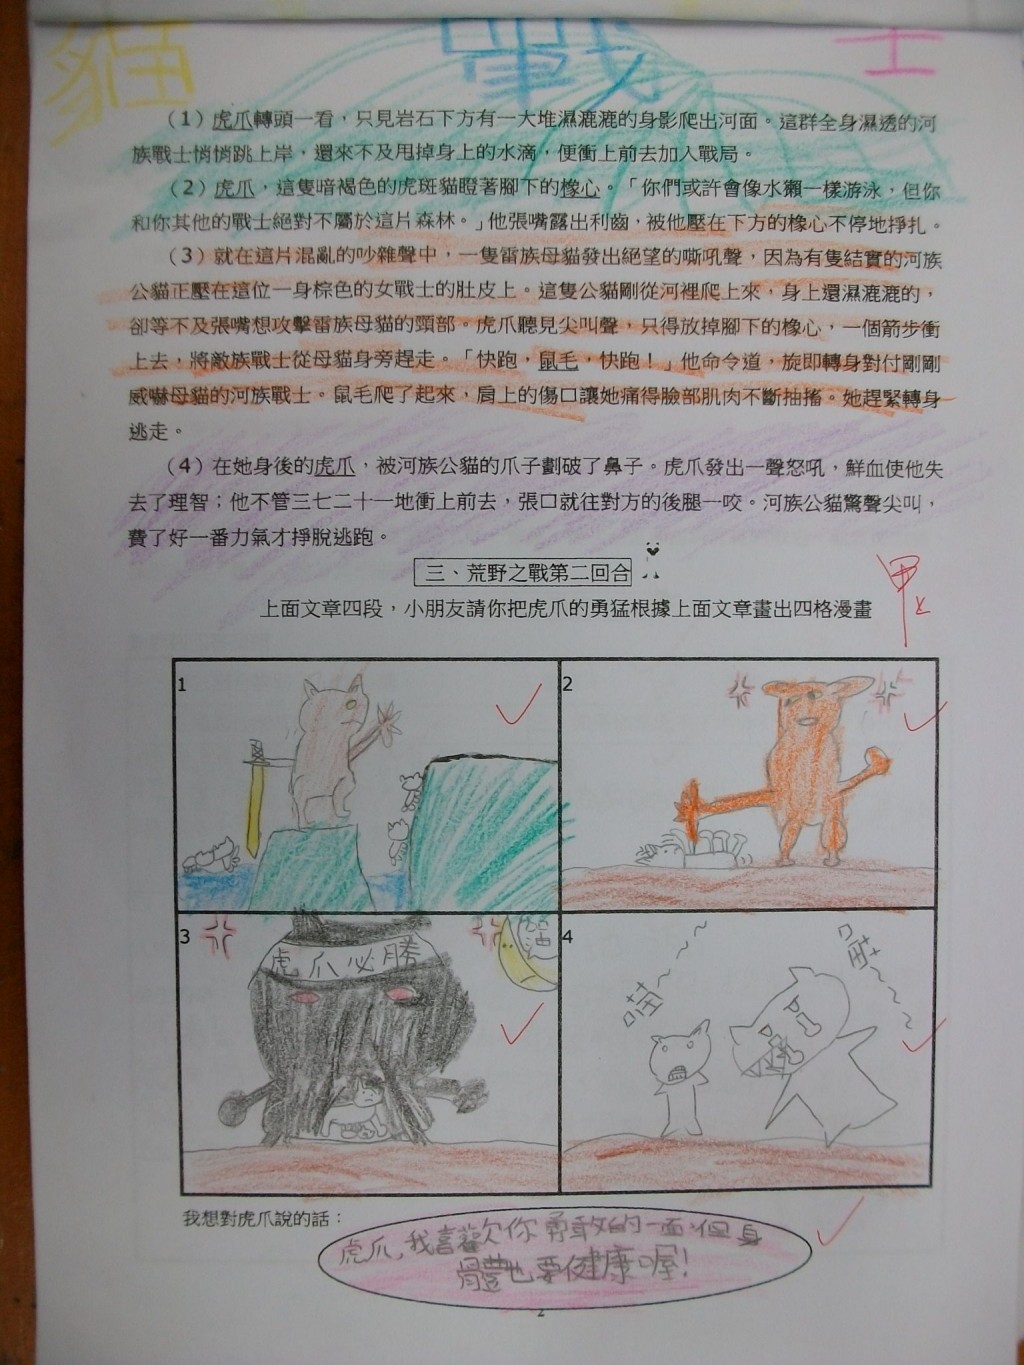 貓 戰 士
（1）虎爪轉頭一看，只見岩石下方有一大堆濕漉漉的身影爬出河面。這群全身濕透的河
族戰士悄悄跳上岸，還來不及甩掉身上的水滴，便衝上前去加入戰局。
（2）虎爪，這隻暗褐色的虎斑貓瞪著腳下的橡心。「你們或許會像水獺一樣游泳，但你
和你其他的戰士絕對不屬於這片森林。」他張嘴露出利齒，被他壓在下方的橡心不停地掙扎。
（3）就在這片混亂的吵雜聲中，一隻雷族母貓發出絕望的嘶吼聲，因為有隻結實的河族
公貓正壓在這位一身棕色的女戰士的肚皮上。這隻公貓剛從河裡爬上來，身上還濕漉漉的，
卻等不及張嘴想攻擊雷族母貓的頸部。虎爪聽見尖叫聲，只得放掉腳下的橡心，一個箭步衝
上去，將敵族戰士從母貓身旁趕走。「快跑，鼠毛，快跑！」他命令道，旋即轉身對付剛剛
威嚇母貓的河族戰士。鼠毛爬了起來，肩上的傷口讓她痛得臉部肌肉不斷抽搐。她趕緊轉身
逃走。
（4）在她身後的虎爪，被河族公貓的爪子劃破了鼻子。虎爪發出一聲怒吼，鮮血使他失
去了理智；他不管三七二十一地衝上前去，張口就往對方的後腿一咬。河族公貓驚聲尖叫，
費了好一番力氣才掙脫逃跑。
三、荒野之戰第二回合
上面文章四段，小朋友請你把虎爪的勇猛根據上面文章畫出四格漫畫
甲上
1
2
3
虎爪必勝
4
喵~~~
我想對虎爪說的話：
虎爪，我喜歡你勇敢的一面，但身
體也要健康喔！
2